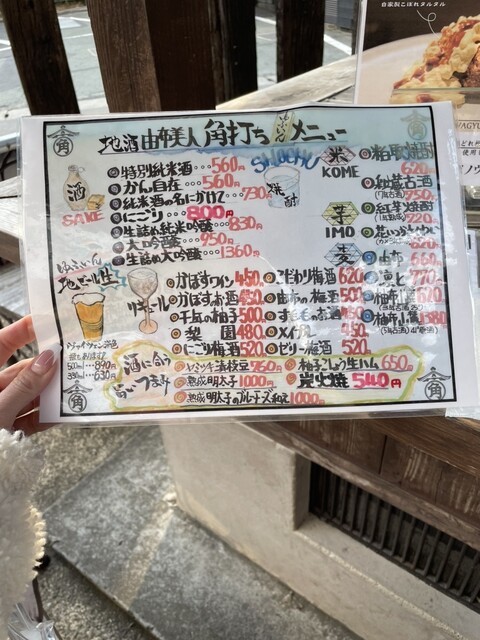 自家製こぼれタルタル
角
地酒 由美人 角打ち メニュー
角
酒
SAKE
特別純米酒…560円
かん自在…560円
純米酒の名にかけて…730円
にごり…800円
生詰め純米吟醸…830円
大吟醸…950円
生詰め大吟醸…1360円
SHOCHU
焼酎
米
KOME
粕取焼酎
620
芋
IMO
紅芋焼酎
720
麦
由布
660
770
1380
ゆふいん
地ビール
500ml…890円
330ml…630円
リキュール
かぼすワイン 450円
かぼすお酒 450
千瓜の柚子 500
梨園 480
にごり梅酒 520
こだわり梅酒 620
由布の梅酒 500
すもものお酒 450
メイプル 450
ゼリー梅酒 520
酒に合う
旨いつまみ
枝豆 360円
熟成明太子 1000円
熟成明太子のブルーチーズ和え 1000円
柚子こしょう生ハム 650円
炭火焼 540円
角
角